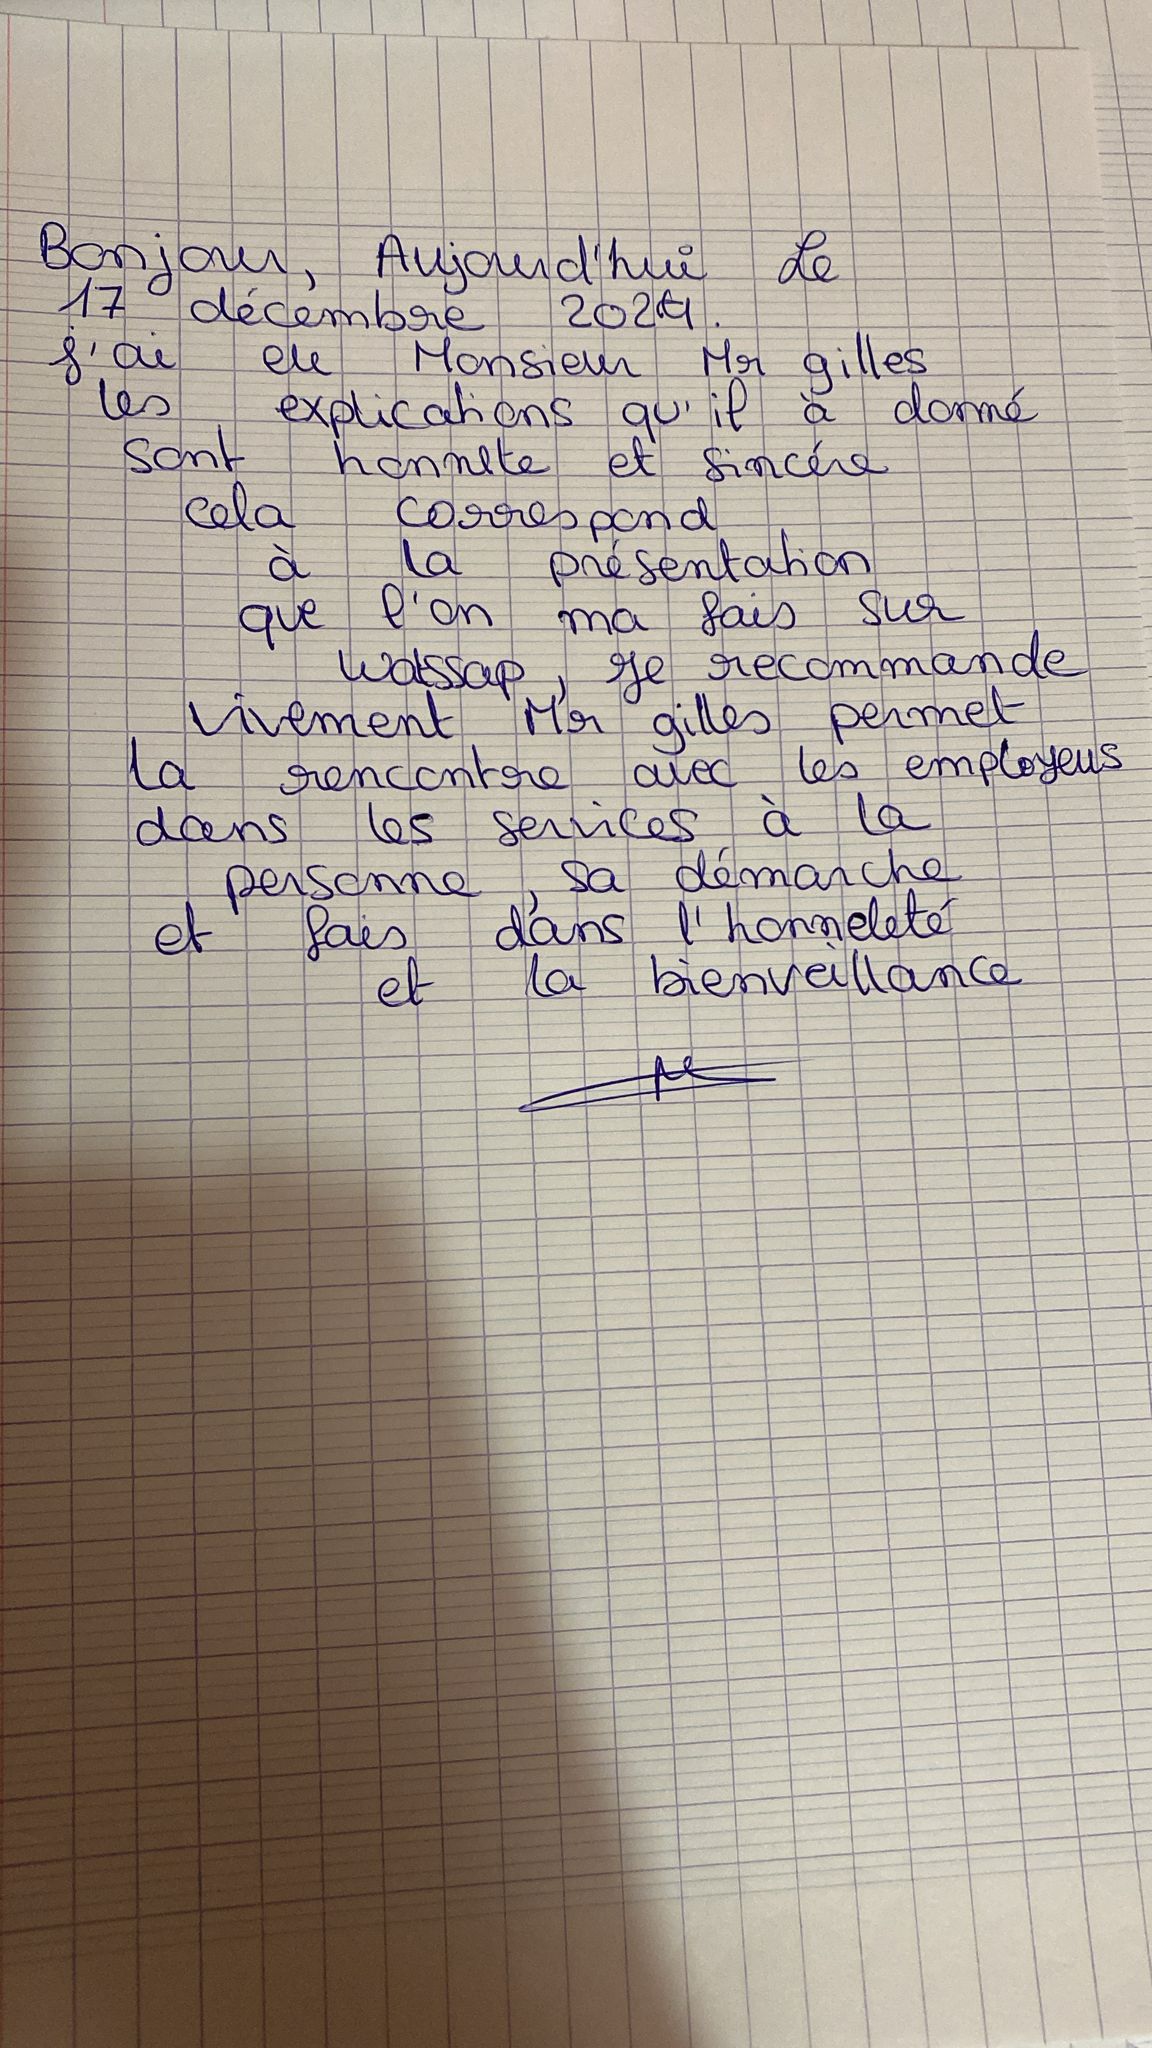 Bonjour, Aujourd'hui Le
17 décembre 2024.
j'ai eu Monsieur Mr gilles
les explications qu'il à donné
sont honnête et sincére
cela correspond
à la présentation
que l'on ma fais sur
watssap, je recommande
vivement Mr gilles permet
la rencontre avec les employeus
dans les services à la
personne, sa démarche
et fais dans l'honneleté
et la bienveillance